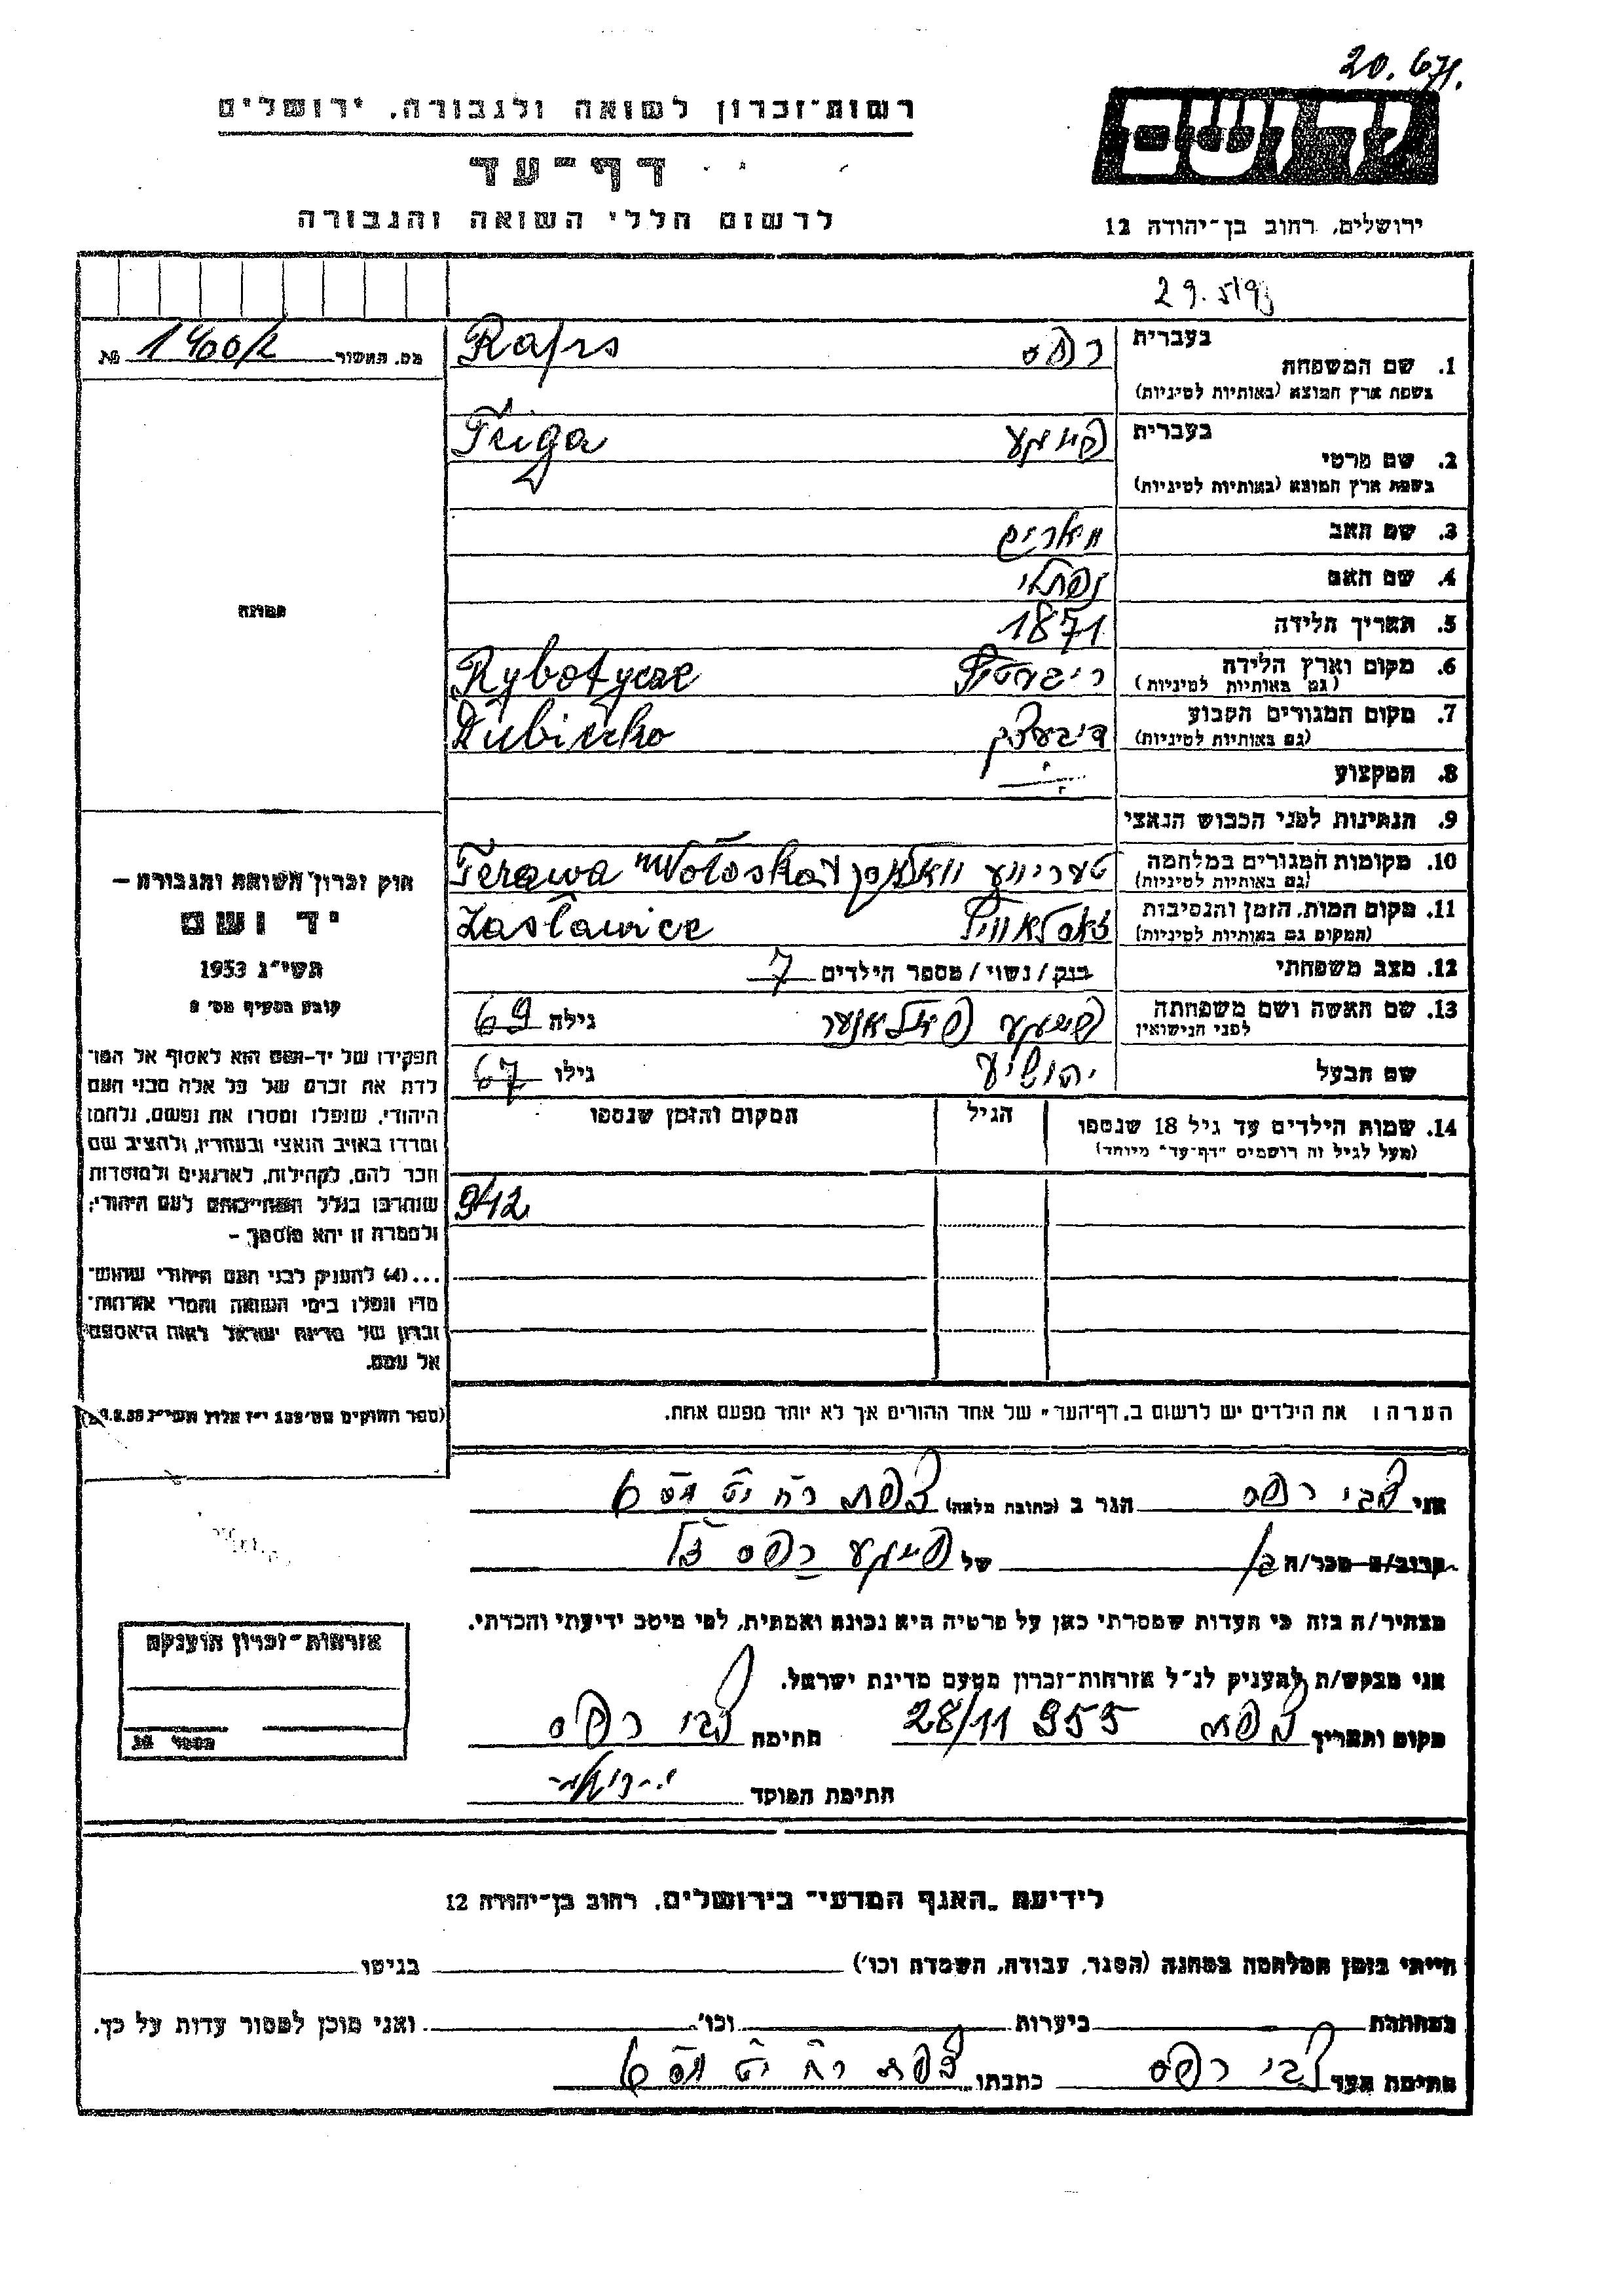 20.671.
רשות־זכרון לשואה ולגבורה, ירושלים
יד ושם
דף־עד
לרשום חללי השואה והגבורה
ירושלים, רחוב בן־יהודה 12
מס. תאשור 1400/2 №
1. שם המשפחה בעברית רפס Raps
בשפת ארץ המוצא (באותיות לטיניות)
2. שם פרטי בעברית פייגע Feiga
בשפת ארץ המוצא (באותיות לטיניות)
3. שם האב
4. שם האם נפתלי
5. תאריך הלידה 1871
6. מקום וארץ הלידה Rybotycze
(גם באותיות לטיניות)
7. מקום המגורים הקבוע
(גם באותיות לטיניות)
8. המקצוע
9. הנתינות לפני הכבוש הנאצי
10. מקומות המגורים במלחמה Terawa Wołoska
(גם באותיות לטיניות)
11. מקום המות, הזמן והנסיבות Zasławice
(המקום גם באותיות לטיניות)
12. מצב משפחתי רווק/נשוי/מספר הילדים 7
13. שם האשה ושם משפחתה פייגע גילה 69
לפני הנישואין
שם הבעל יהושיע גילו 67
14. שמות הילדים עד גיל 18 שנספו הגיל המקום והזמן שנספו
(מעל לגיל זה רושמים "דף־עד" מיוחד)
942
הערה: את הילדים יש לרשום ב"דף־העד" של אחד ההורים אך לא יותר מפעם אחת.
תמונה
חוק זכרון השואה והגבורה –
יד ושם
תשי"ג 1953
קובע בסעיף מס' 2
תפקידו של יד־ושם הוא לאסוף אל המו־
לדת את זכרם של כל אלה מבני העם
היהודי, שנפלו ומסרו את נפשם, נלחמו
ומרדו באויב הנאצי ובעוזריו, ולהציב שם
וזכר להם, לקהילות, לארגונים ולמוסדות
שנחרבו בגלל השתייכותם לעם היהודי;
ולמטרה זו יהא מוסמך –
...(4) להעניק לבני העם היהודי שהוש־
מדו ונפלו בימי השואה והמרי אזרחות־
זכרון של מדינת ישראל לאות היאספם
אל עמם.
אני צבי רפס הגר ב (כתובת מלאה) צפת
קרוב/ה מכר/ה של פייגע רפס ז"ל
מצהיר/ה בזה כי העדות שמסרתי כאן על פרטיה היא נכונה ואמתית, לפי מיטב ידיעתי והכרתי.
אני מבקש/ת להעניק לנ"ל אזרחות־זכרון מטעם מדינת ישראל.
מקום ותאריך צפת 28/11 955 חתימה צבי רפס
חתימת הפוקד
אזרחות־זכרון הוענקה
לידיעת "האגף המדעי" בירושלים, רחוב בן־יהודה 12
הייתי בזמן המלחמה במחנה (הסגר, עבודה, השמדה וכו') בגיטו
במחתרת ביערות וכו' ואני מוכן למסור עדות על כך.
חתימת העד צבי רפס כתבתו צפת